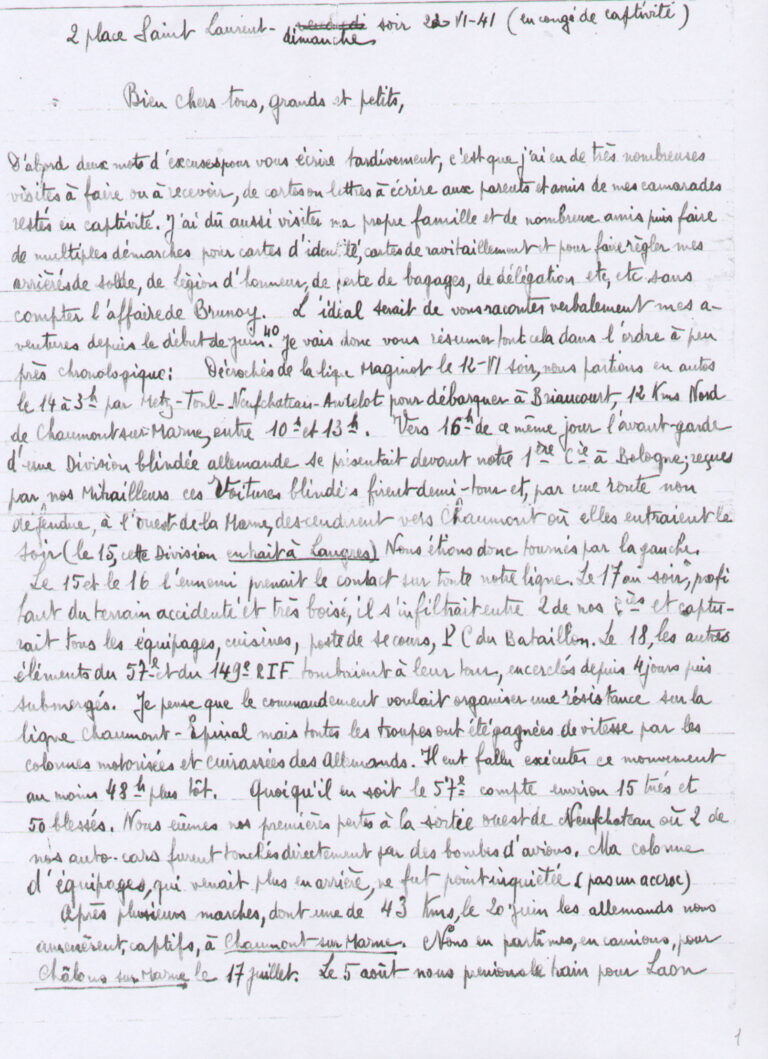 2 place Saint Laurent - vendredi soir 22-VI-41 (en congé de captivité)
dimanche
Bien chers tous, grands et petits,
D'abord deux mots d'excuses pour vous écrire tardivement, c'est que j'ai eu de très nombreuses
visites à faire ou à recevoir, de cartes ou lettres à écrire aux parents et amis de mes camarades
restés en captivité. J'ai dû aussi visiter ma propre famille et de nombreux amis puis faire
de multiples démarches pour cartes d'identité, cartes de ravitaillement et pour faire règler mes
arriérés de solde, de légion d'honneur, de perte de bagages, de délégation etc, etc sans
compter l'affaire de Brunoy. L'idéal serait de vous raconter verbalement mes a-
ventures depuis le début de juin 40. Je vais donc vous résumer tout cela dans l'ordre à peu
près chronologique: Décrochés de la ligne Maginot le 12-VI soir, nous partions en autos
le 14 à 3h par Metz-Toul-Neufchateau-Andelot pour débarquer à Briaucourt, 12 Kms Nord
de Chaumont sur Marne, entre 10h et 13h. Vers 16h de ce même jour l'avant-garde
d'une Division blindée allemande se présentait devant notre 1ère Cie à Bologne; reçues
par nos Mitrailleurs ces Voitures blindés firent demi-tour et, par une route non
défendue, à l'ouest de la Marne, descendirent vers Chaumont où elles entraient le
soir (le 15, cette Division entrait à Langres) Nous étions donc tournés par la gauche.
Le 15 et le 16 l'ennemi prenait le contact sur toute notre ligne. Le 17 au soir, profi
tant du terrain accidenté et très boisé, il s'infiltrait entre 2 de nos Cies et captu-
rait tous les équipages, cuisines, poste de secours, PC du Bataillon. Le 18, les autres
éléments du 57e et du 149e RIF tombaient à leur tour, encerclés depuis 4 jours puis
submergés. Je pense que le commandement voulait organiser une résistance sur la
ligne Chaumont-Epinal mais toutes les troupes ont été gagnées de vitesse par les
colonnes motorisées et cuirassées des Allemands. Il eut fallu exécuter ce mouvement
au moins 48h plus tôt. Quoiqu'il en soit le 57e compte environ 15 tués et
50 blessés. Nous eûmes nos premières pertes à la sortie ouest de Neufchateau où 2 de
nos auto-cars furent touchés directement par des bombes d'avions. Ma colonne
d'équipages, qui venait plus en arrière, ne fut point inquiétée (pas un accroc)
Après plusieurs marches, dont une de 43 Kms, le 20 juin les allemands nous
amenèrent, captifs, à Chaumont sur Marne. Nous en partîmes, en camions, pour
Châlons sur Marne le 17 juillet. Le 5 août nous prenions le train pour Laon
1